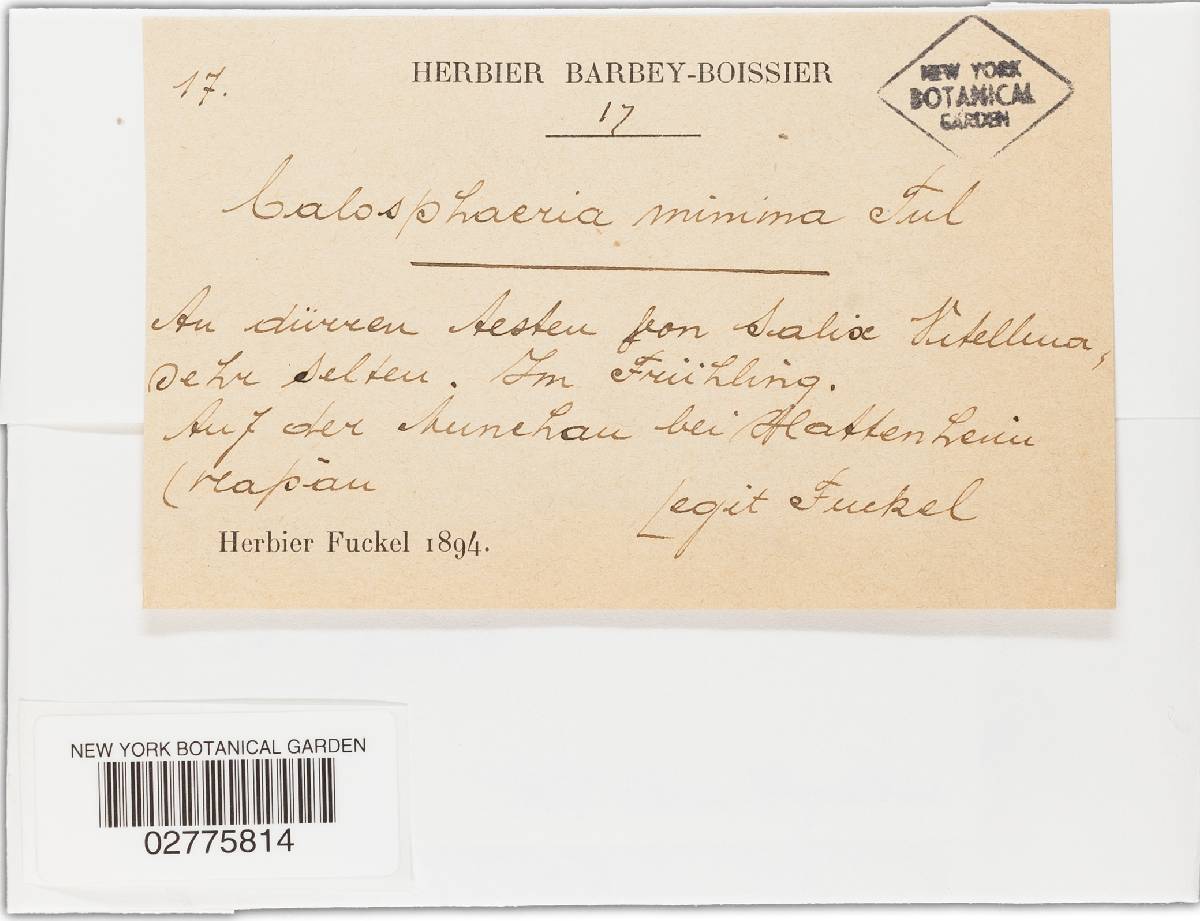 17.
HERBIER BARBEY-BOISSIER
17
NEW YORK
BOTANICAL
GARDEN
Calosphaeria minima Tul
An dürren Aesten von Salix Vitellina,
sehr selten. Im Frühling.
Auf der Munchau bei Hattenheim
Legit Fuckel
Herbier Fuckel 1894.
NEW YORK BOTANICAL GARDEN
02775814